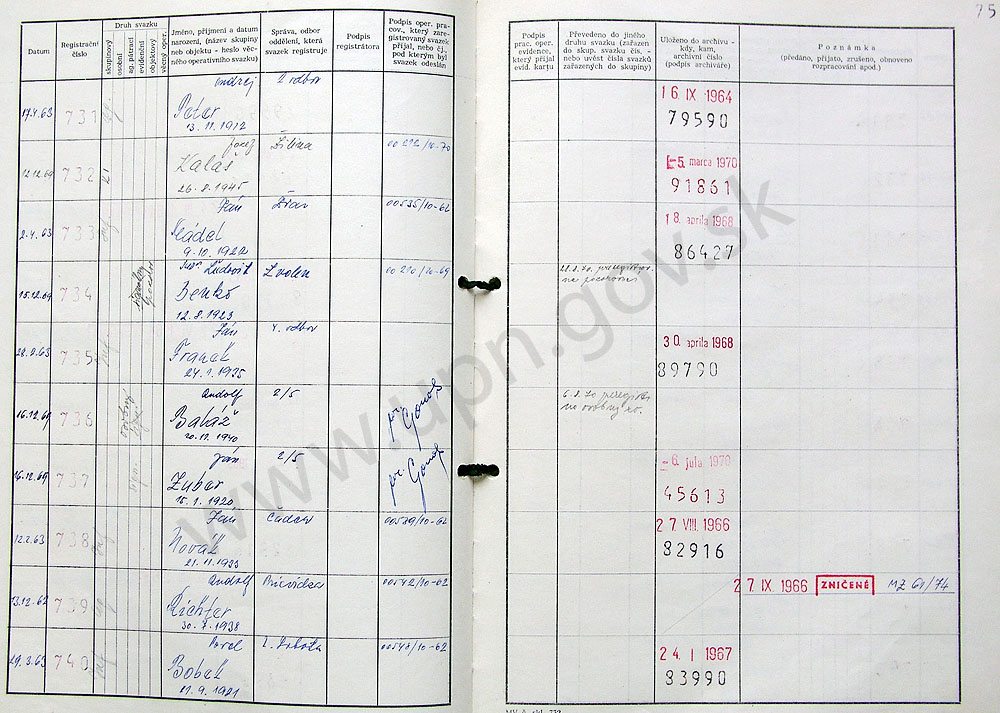 75
Datum
Registrační číslo
Druh svazku
skupinový
osobní
ag. pátrací
evidenční
objektový
věcný oper.
Jméno, příjmení a datum
narození, (název skupiny
neb objektu - heslo věc-
ného operativního svazku)
Správa, odbor
oddělení, která
svazek registruje
Podpis
registrátora
Podpis oper. pra-
cov., který zare-
gistrovaný svazek
přijal, nebo čj.,
pod kterým byl
svazek odeslán
Podpis
prac. oper.
evidence,
který přijal
ev. kartu
Převedeno do jiného
druhu svazku (zařazen
do skup. svazku čís. -
nebo uvést čísla svazků
zařazených do skupiny)
Uloženo do archivu -
kdy, kam,
archivní číslo
(podpis archiváře)
Poznámka
(předáno, přijato, zrušeno, obnoveno
rozpracování apod.)
Ondrej
17.4.63 731 Peter 2. odbor 16 IX 1964
13.11.1912 79590
Jozef Žilina 00272/10-70
12.12.69 732 Kalaš -5. marca 1970
26.8.1945 91861
Ján 00535/10-62 18 apríla 1968
2.4.63 733
9.10.1922 86427
Ľudovít Zvolen 00210/10-69
15.12.69 734 Benko
12.8.1923
Ján 4. odbor 30 apríla 1968
735 Franek
24.1.1935 89790
Rudolf 2/5
16.12.69 736 Baláž
20.11.1940
Ján 2/5 -6. júla 1970
16.12.69 737 Zubar
15.1.1920 45613
Ján Čadca 00529/10-62 27 VIII. 1966
12.2.63 738 Novák
21.11.1933 82916
Rudolf Prievidza 00542/10-62
13.12.62 739 Richter 27. IX. 1966 ZNIČENÉ MZ 61/74
30.7.1938
Pavel R. Sobota 00548/10-62 24. I 1967
29.3.63 740 Bobek
11.9.1921 83990
www.upn.gov.sk